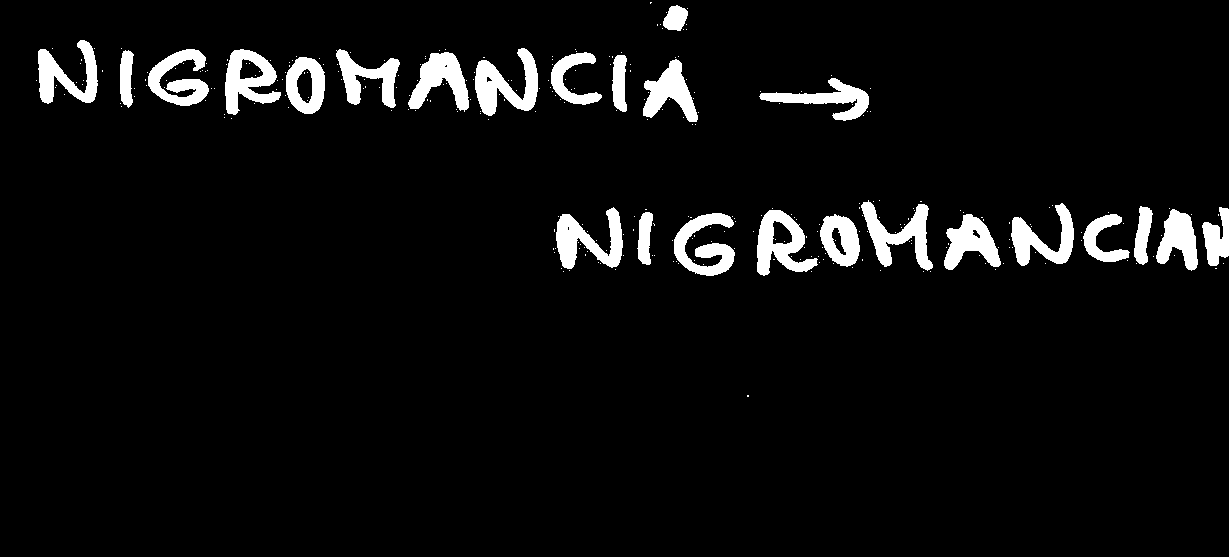 NIGROMANCIȦ →
NIGROMANCIAM